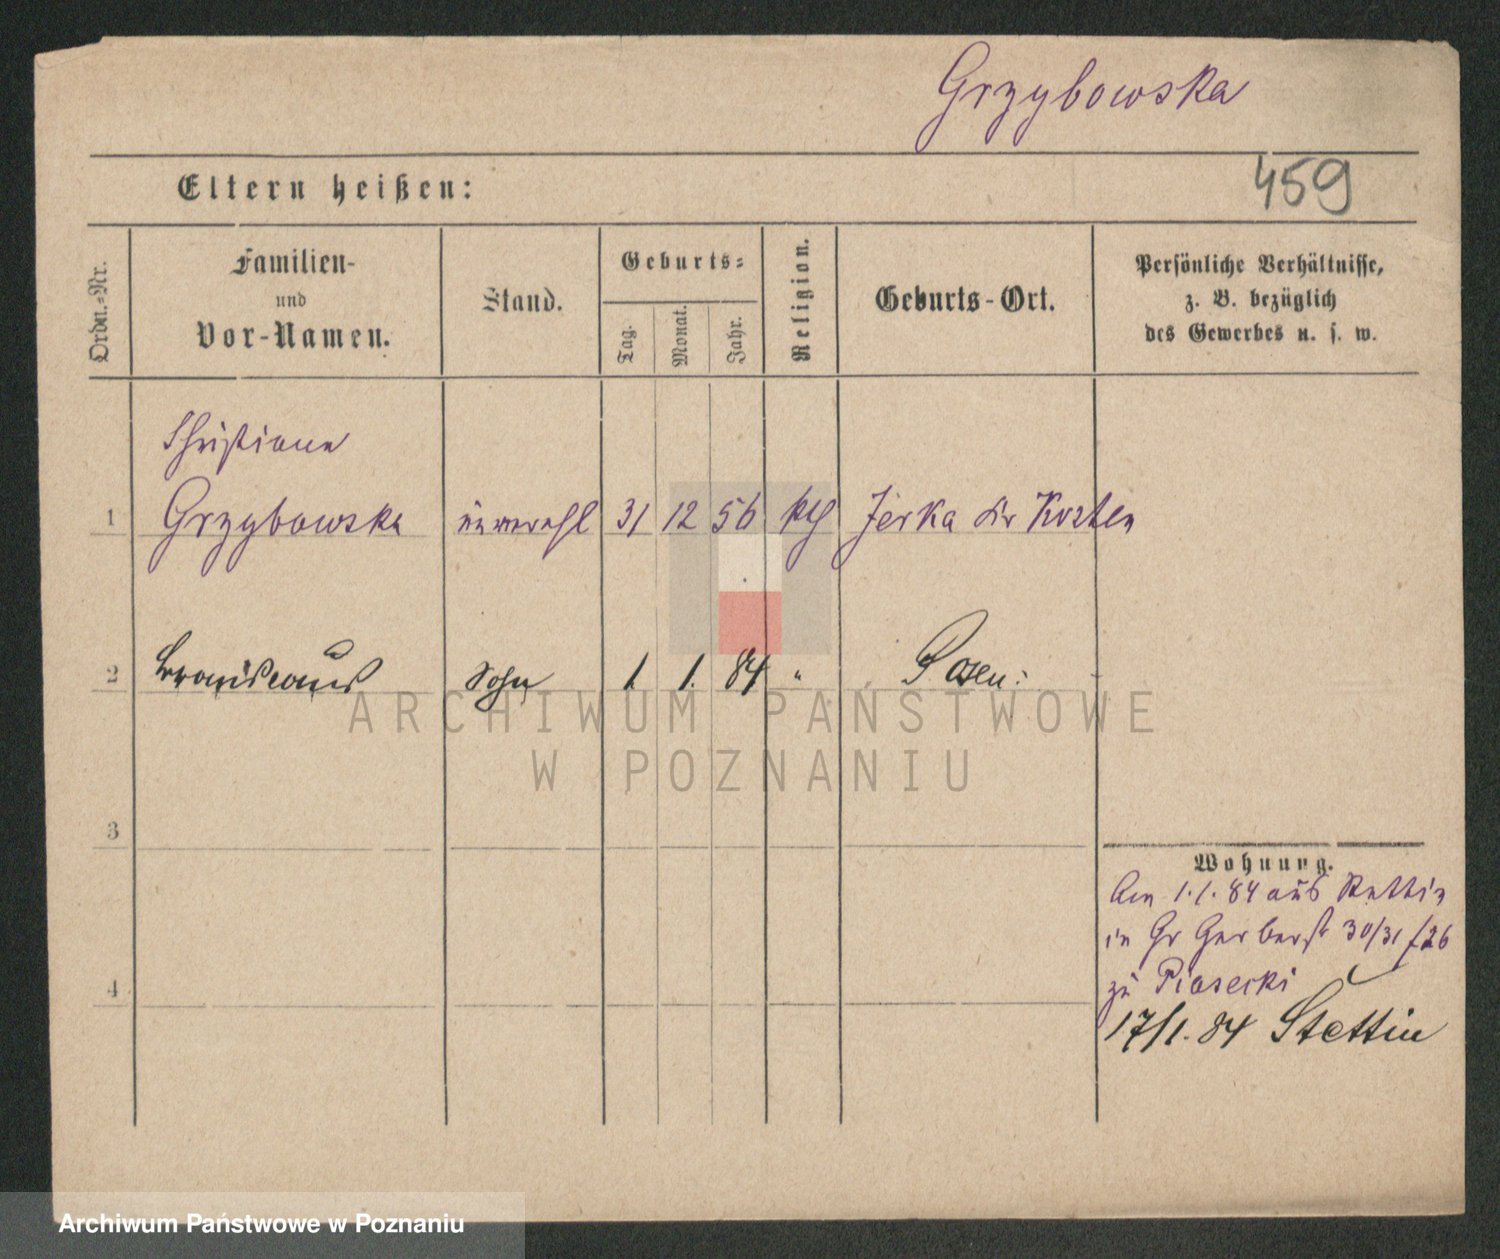 Grzybowska
459
Eltern heißen:
Ordn.=Nr.
Familien-
und
Vor-Namen.
Stand.
Geburts=
Tag.
Monat.
Jahr.
Religion.
Geburts-Ort.
Persönliche Verhältnisse,
z. B. bezüglich
des Gewerbes u. s. w.
Christiane
1 Grzybowska unverehl 31 12 56 kth Jerka Kr Kosten
2 Bronislaus Sohn 1. 1. 84 " Posen.
3
4
Wohnung.
Am 1.1.84 aus Stettin
in Gr Gerberst 30/31 /26
zu Piasecki
17/1.84 Stettin
ARCHIWUM PAŃSTWOWE
W POZNANIU
Archiwum Państwowe w Poznaniu